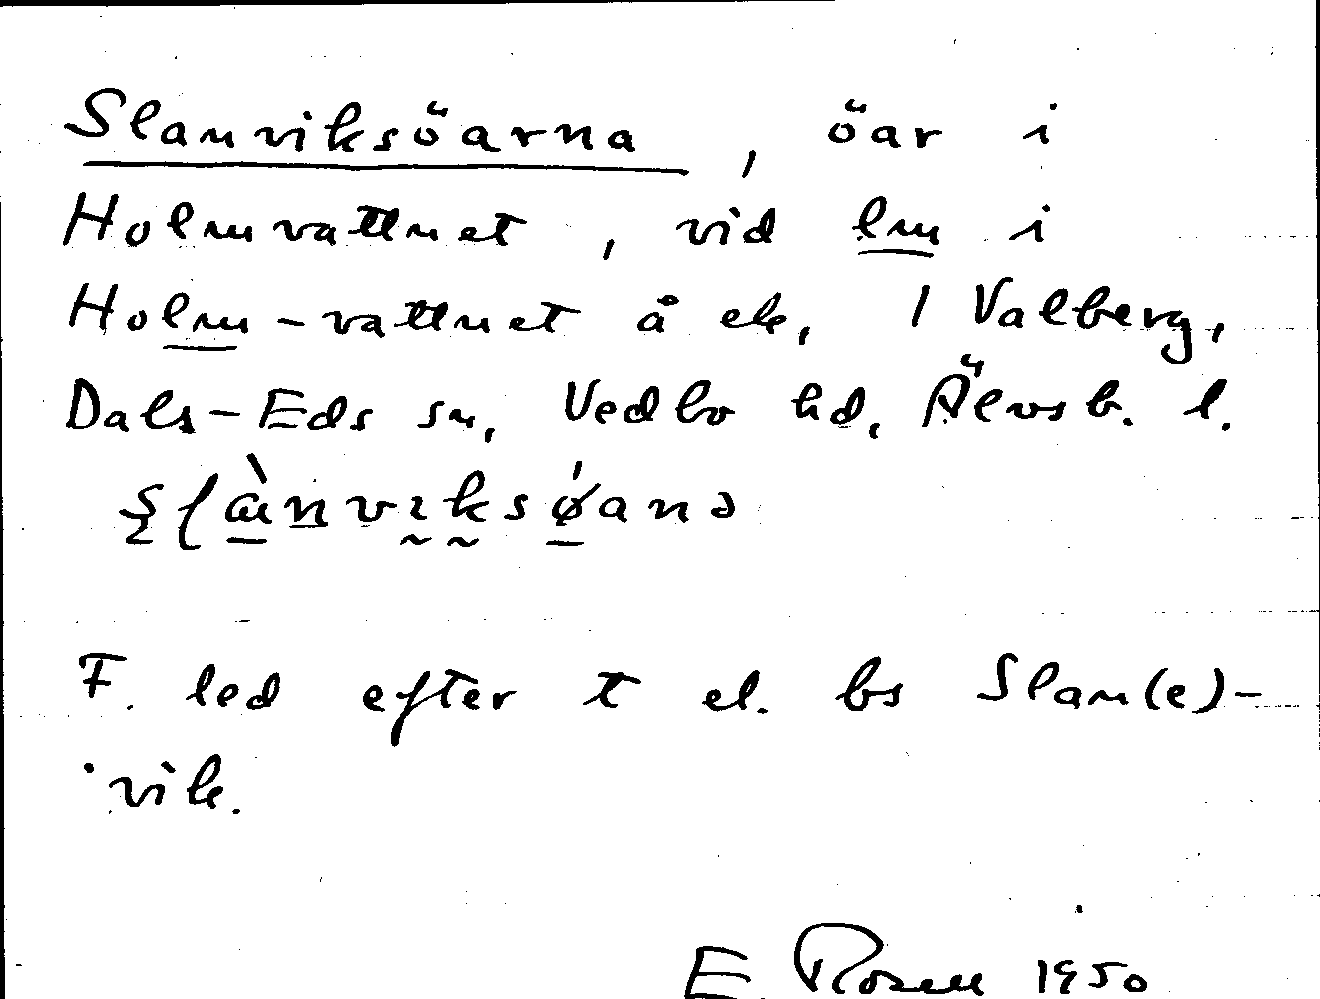 Slanviksöarna, öar i
Holmvattnet, vid lm i
Holm-vattnet å ek, 1 Valberg,
Dals-Eds sn, Vedbo hd, Älvsb. l.
F. led efter t el. bs Slan(e)-
vik.
E. Rosell 1950